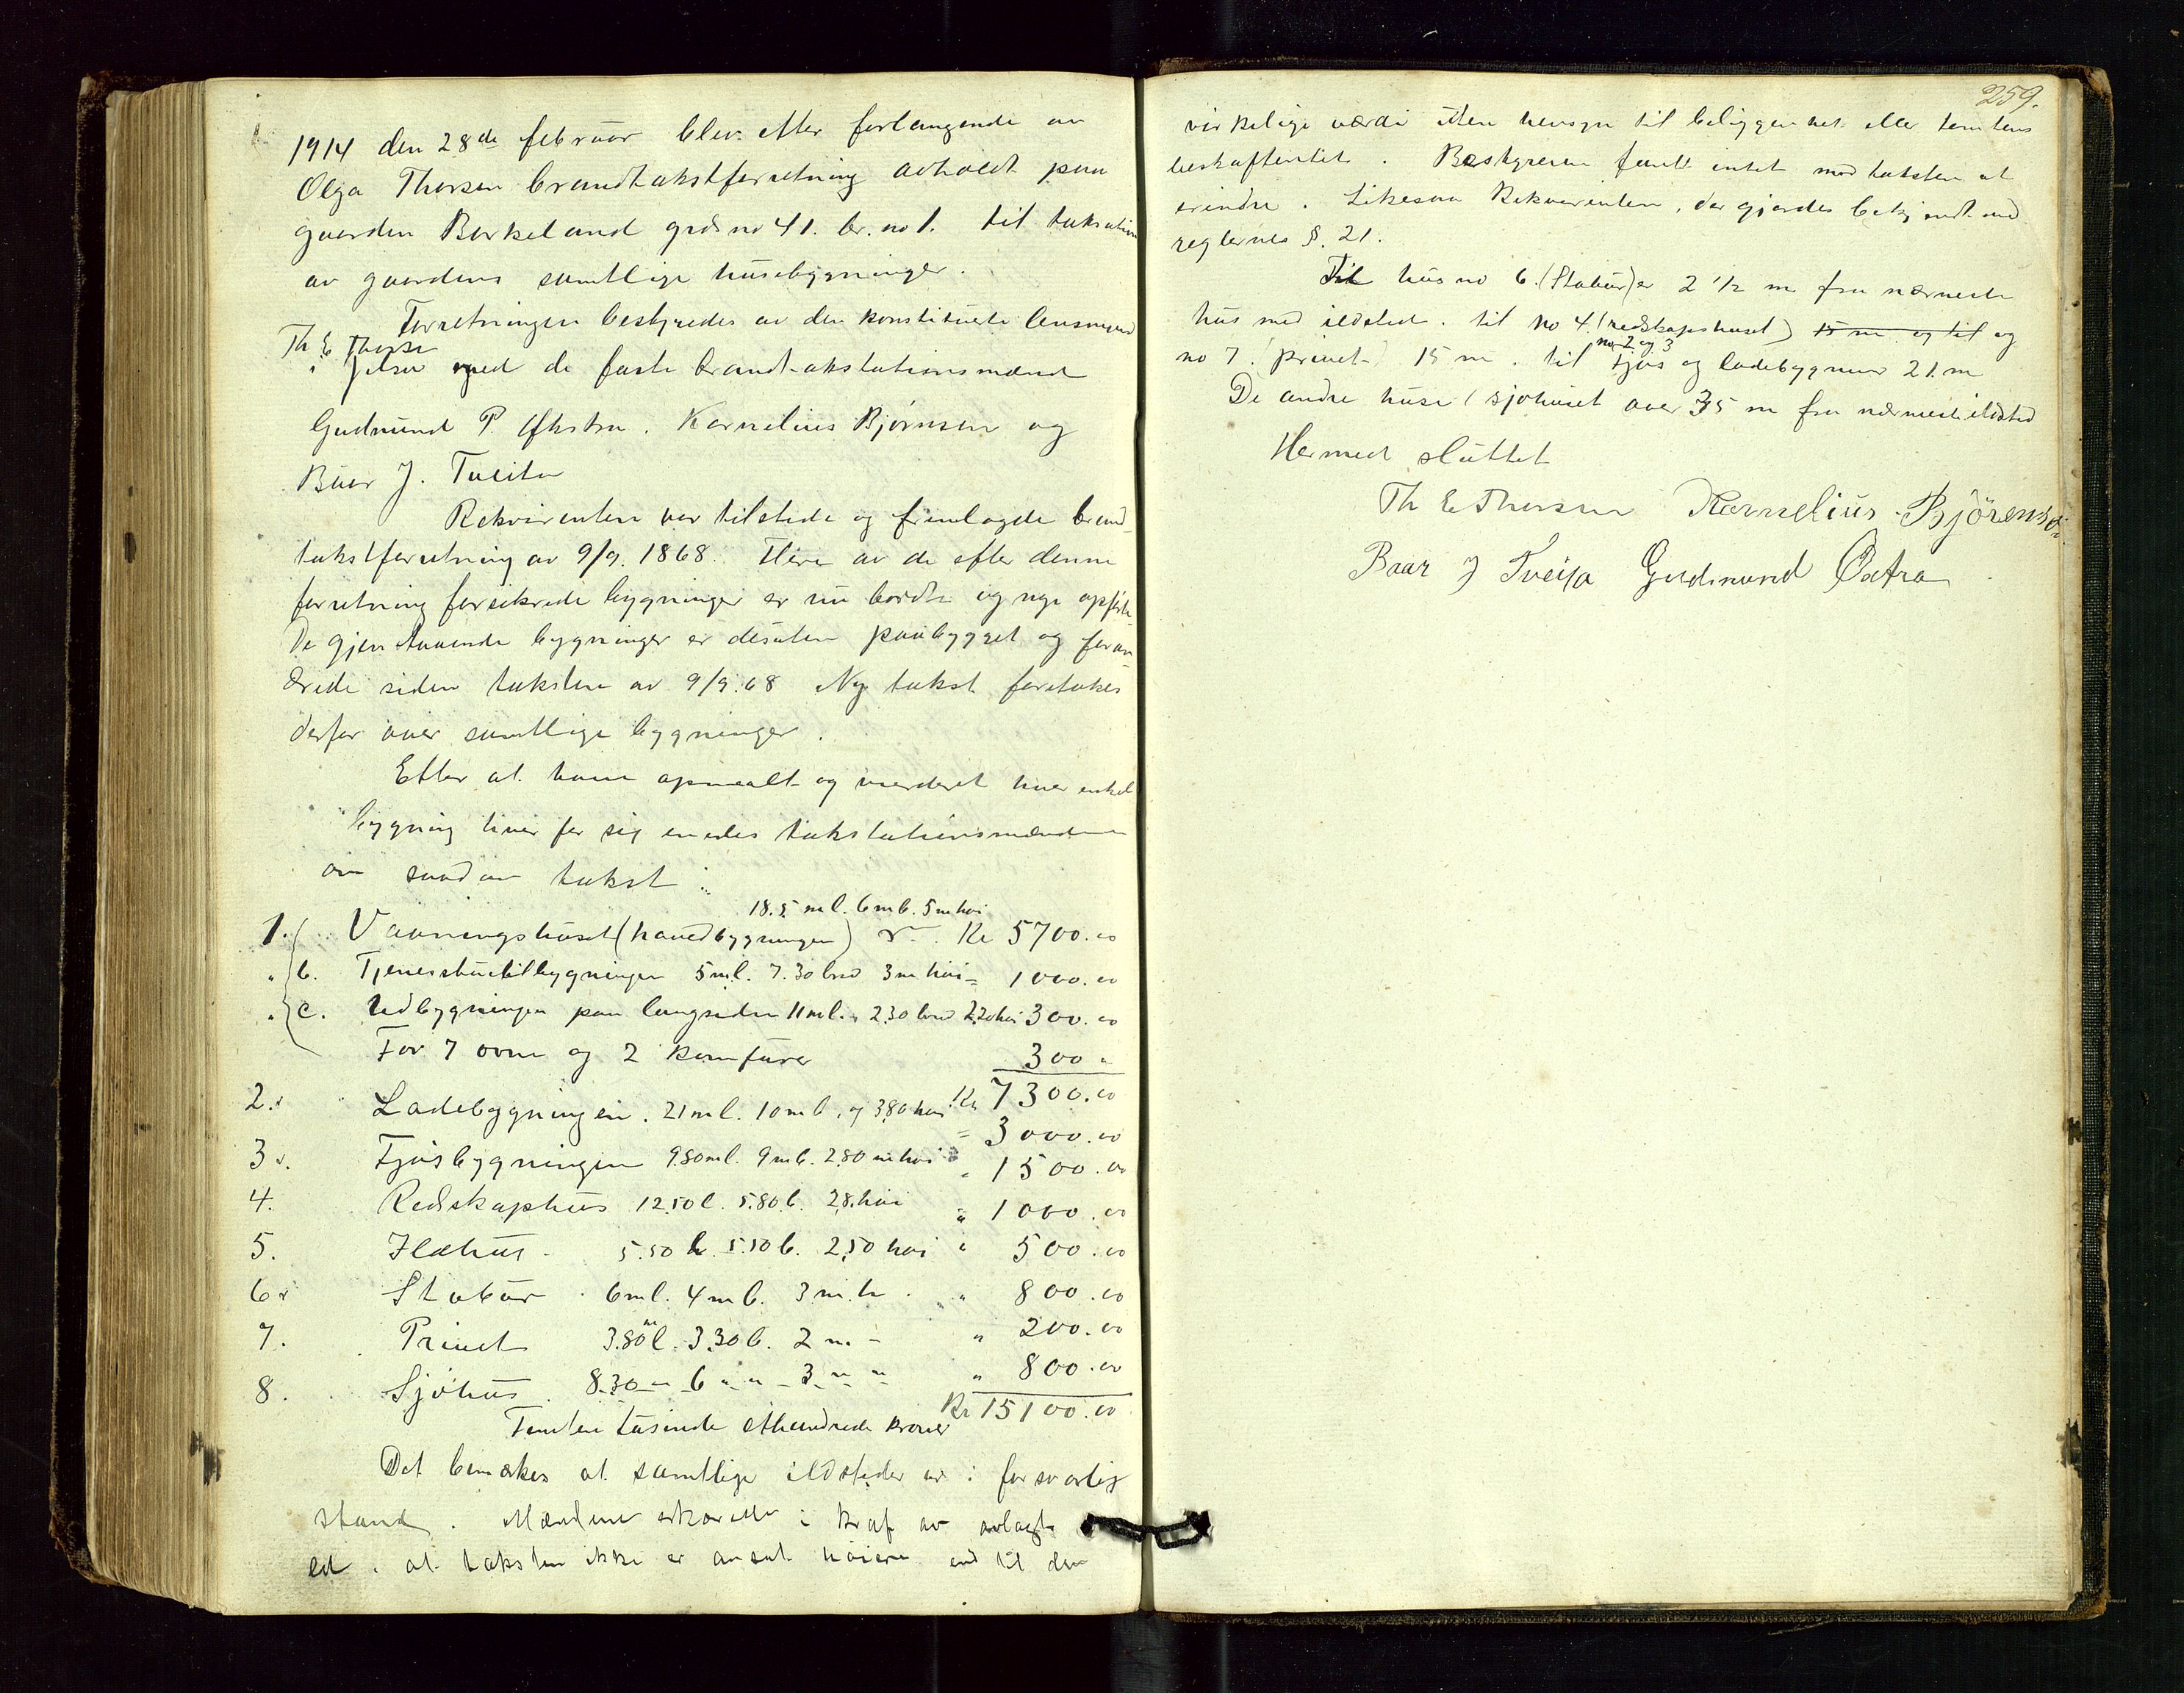 1914 den 28de februar blev efter forlangende av
Olga Thorsen brandtakstforretning avholdt paa
gaarden Borkeland grds no 41. br. no 1. til taksation
av gaardens samtlige husebygninger.
Forretningen bestyredes av den konstituerte lensmand
Th E Thorsen
i Jelsa med de faste brandtakstationsmænd
Gudmund P. Østra. Kornelius Bjørnsen og
Baar J. Tveita
Rekvirenten var tilstede og fremlagde brand
takstforretning av 9/9. 1868. Flere av de efter denne
forretning forsikrede bygninger er nu borte og nye opført
De gjenstaaende bygninger er desuten paabygget og foran-
drede siden taksten av 9/9.68 Ny takst foretakes
derfor over samtlige bygninger.
Efter at have opmaalt og vurderet hver enkel
bygning hver for sig enedes takstationsmændene
om saadan takst:
18.5 m l. 6 m b. 5 m høi
1. Vaaningshuset (hovedbygningen) Kr 5700.00
" b. Tjenerstuetilbygningen 5 m l. 7.30 bred 3 m høi = 1000.00
" c. Udbygningen paa langsiden 11 m l. 2.30 bred 2.20 høi 300.00
For 7 ovne og 2 komfurer 300 "
Kr 7300.00
2. Ladebygningen. 21 m l. 10 m b. og 3.80 høi = 3000.00
3. Fjøsbygningen 9.80 m l. 9 m b. 2.80 m høi " 1500.00
4. Redskaphus 12.50 l. 5.80 b. 2.8. høi " 1000.00
5. Ildhus. 5.50 l. 5.50 b. 2.50 høi " 500.00
6. Stabur. 6 m l. 4 m b. 3 m. h. " 800.00
7. Privet 3.80 m l. 3.30 b. 2 m. - " 200.00
8. Sjøhus. 8.30 - " 6 " " - 3 " " " 800.00
Kr 15100.00
Femten tusinde ethundrede kroner
Det bemerkes at samtlige ildsteder er i forsvarlig
stand. Mændene erklærede i kraf av avlagt
ed. at taksten ikke er ansat høiere end til den
259.
virkelige værdi uten hensyn til beliggenhet eller tomtens
beskaffenhet. Bestyreren fandt intet mod taksten at
erindre. Likesaa Rekvirenten, der gjordes bekjendt med
reglernes §. 21.
Til hus no 6. (Stabur) er 2 1/2 m fra nærmeste
hus med ildsted. til no 4. (redskapshuset) 15 m og til og
no 7. (privet) 15 m. til no 2 og 3 Fjøs og ladebygning 21. m
De andre huse (sjøhuset over 35 m fra nærmeste ildsted
Hermed sluttet
Th E Thorsen Kornelius Bjørensen.
Baar J Tveita Gudmund Østra